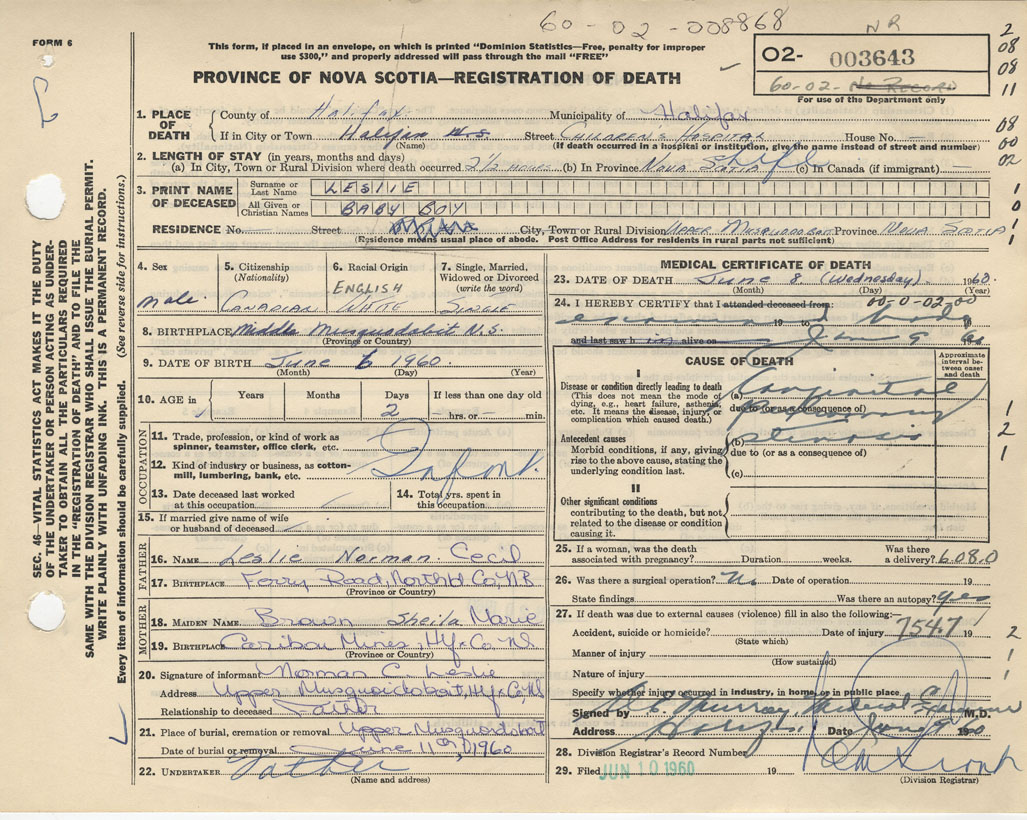 60-02-008868
NR
FORM 6
This form, if placed in an envelope, on which is printed "Dominion Statistics—Free, penalty for improper
use $300," and properly addressed will pass through the mail "FREE"
PROVINCE OF NOVA SCOTIA—REGISTRATION OF DEATH
02- 003643
60-02- No RECORD
For use of the Department only
2
08
08
11
08
00
02
1. PLACE OF DEATH
County of Halifax Municipality of Halifax
If in City or Town Halifax N.S. Street CHILDREN'S HOSPITAL House No. —
(Name) (If death occurred in a hospital or institution, give the name instead of street and number)
2. LENGTH OF STAY (in years, months and days)
(a) In City, Town or Rural Division where death occurred 2½ HOURS (b) In Province NOVA SCOTIA (c) In Canada (if immigrant)
3. PRINT NAME OF DECEASED
Surname or Last Name LESLIE
All Given or Christian Names BABY BOY
RESIDENCE No. — Street City, Town or Rural Division UPPER MUSQUODOBOIT Province NOVA SCOTIA
(Residence means usual place of abode. Post Office Address for residents in rural parts not sufficient)
4. Sex
male.
5. Citizenship
(Nationality)
CANADIAN
6. Racial Origin
ENGLISH
WHITE
7. Single, Married,
Widowed or Divorced
(write the word)
SINGLE
8. BIRTHPLACE Middle Musquodobit N.S.
(Province or Country)
9. DATE OF BIRTH June 6 1960
(Month) (Day) (Year)
10. AGE in Years Months Days If less than one day old
2 hrs. or — min.
OCCUPATION
11. Trade, profession, or kind of work as
spinner, teamster, office clerk, etc.
12. Kind of industry or business, as cotton-
mill, lumbering, bank, etc. Infant.
13. Date deceased last worked
at this occupation.
14. Total yrs. spent in
this occupation.
15. If married give name of wife
or husband of deceased
FATHER
16. NAME Leslie Norman Cecil
17. BIRTHPLACE Ferry Road, North'd Co, NB
(Province or Country)
MOTHER
18. MAIDEN NAME Brown Sheila Marie
19. BIRTHPLACE Caribou Mines, Hfx Co NS
(Province or Country)
20. Signature of informant Norman C. Leslie
Address Upper Musquoidoboit, Hfx Co, NS
Relationship to deceased Father
21. Place of burial, cremation or removal Upper Musquodoboit
Date of burial or removal June 11th, 1960
22. UNDERTAKER Father
(Name and address)
MEDICAL CERTIFICATE OF DEATH
23. DATE OF DEATH June 8. (Wednesday) 1960
(Month) (Day) (Year)
24. I HEREBY CERTIFY that I attended deceased from: 00-0-02-00
examined 19 to body 19
and last saw h im alive on June 9 60
CAUSE OF DEATH
Approximate
interval be-
tween onset
and death
I
Disease or condition directly leading to death
(This does not mean the mode of
dying, e.g., heart failure, asthenia,
etc. It means the disease, injury, or
complication which caused death.)
(a) Congenital
due to (or as a consequence of) Pulmonary
Antecedent causes
Morbid conditions, if any, giving
rise to the above cause, stating the
underlying condition last.
(b) stenosis
due to (or as a consequence of)
(c)
II
Other significant conditions
contributing to the death, but not
related to the disease or condition
causing it.
25. If a woman, was the death
associated with pregnancy? Duration weeks. Was there
a delivery? 608.0
26. Was there a surgical operation? No Date of operation 19
State findings Was there an autopsy? yes
27. If death was due to external causes (violence) fill in also the following:—
Accident, suicide or homicide? Date of injury 7547 19
(State which)
Manner of injury
(How sustained)
Nature of injury
Specify whether injury occurred in industry, in home, or in public place
Signed by Murray, Medical Examiner M.D.
Address Date June 9 1960
28. Division Registrar's Record Number
29. Filed JUN 10 1960 19
(Division Registrar)
SEC. 46—VITAL STATISTICS ACT MAKES IT THE DUTY
OF THE UNDERTAKER OR PERSON ACTING AS UNDER-
TAKER TO OBTAIN ALL THE PARTICULARS REQUIRED
IN THE "REGISTRATION OF DEATH" AND TO FILE THE
SAME WITH THE DIVISION REGISTRAR WHO SHALL ISSUE THE BURIAL PERMIT.
WRITE PLAINLY WITH UNFADING INK. THIS IS A PERMANENT RECORD.
Every item of information should be carefully supplied. (See reverse side for instructions.)